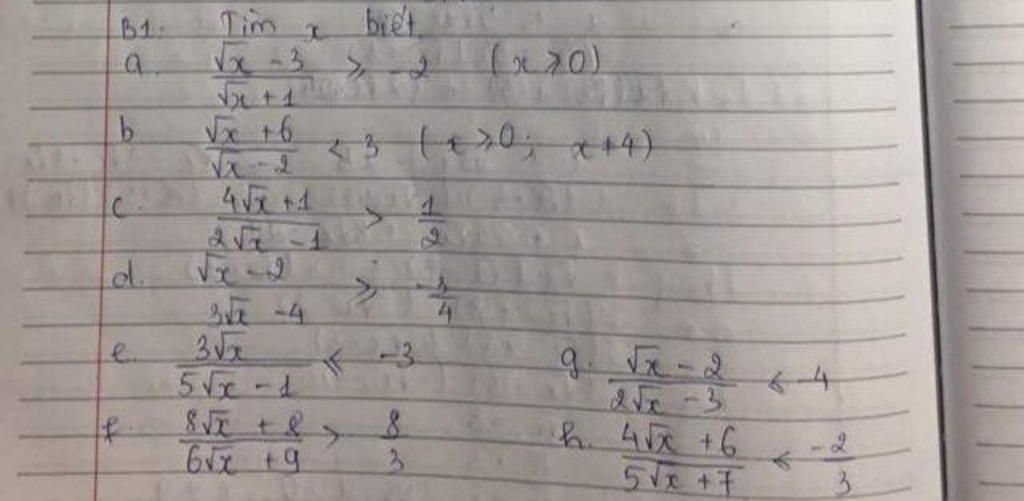 B1. Tìm x biết.
a. (√x - 3)/(√x + 1) ≥ -2 (x ≥ 0)
b (√x + 6)/(√x - 2) < 3 (x ≥ 0; x ≠ 4)
c. (4√x + 1)/(2√x - 1) > 1/2
d. (√x - 2)/(3√x - 4) ≥ -3/4
e. 3√x/(5√x - 1) ≤ -3 g. (√x - 2)/(2√x - 3) ≤ -4
f. (8√x + 8)/(6√x + 9) > 8/3 h. (4√x + 6)/(5√x + 7) ≤ -2/3